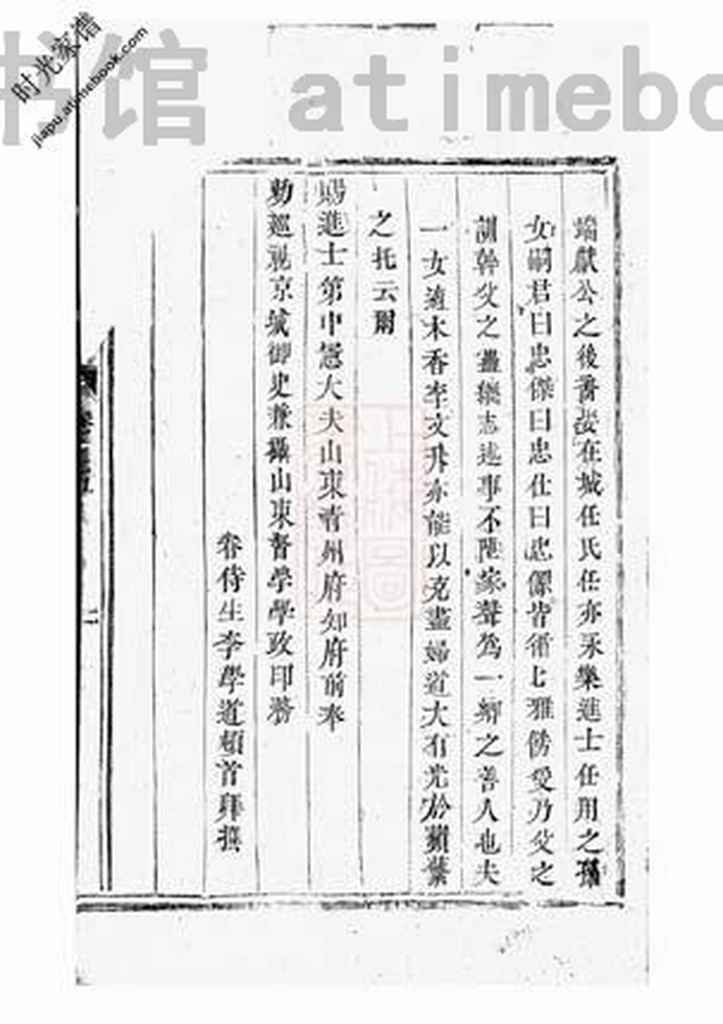 端獻公之後喬安在城任氏任亦永樂進士任用之孫
女嗣君曰忠傑曰忠仕曰忠儒皆循七雅傍受乃父之
訓幹父之蠱繼志述事不隳家聲為一鄉之善人也夫
一女適木香李文升亦能以克盡婦道大有光於蘋蘩
之托云爾
賜進士第中憲大夫山東青州府知府前奉
勅巡視京城御史兼攝山東督學學政印務
眷侍生李學道頓首拜撰
二
时光家谱
jiapu.atimebook.com
书馆 atimebo